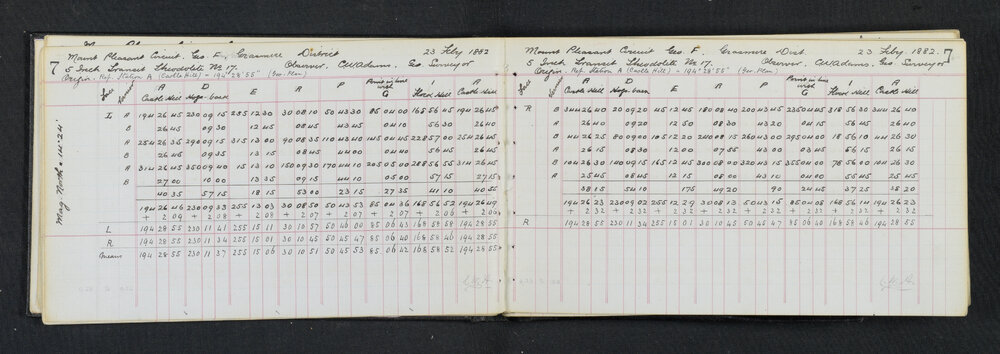 7 Mount Pleasant Circuit. Geo. F. Grasmere District 23 Feby. 1882
5 Inch Transit Theodolite No 17. Observer, C.W. Adams. Geo Surveyor
Origin. Ref. Station A (Castle Hill) = 194° 28' 55" (Geo. Plan)
Face A D E R P Point in line with G I A
Castle Hill Hogs-back Flood Hill Castle Hill
Mag North = 14° 24'
I A 194 26 45 230 09 15 255 12 30 30 08 10 50 43 30 85 04 00 168 56 45 194 26 45
B 26 45 09 30 12 45 08 45 43 45 04 10 56 30 26 40
A 254 26 35 290 09 15 315 13 00 90 08 35 110 43 40 145 04 00 228 57 00 254 26 45
B 26 45 09 35 13 15 08 45 44 00 04 40 56 45 26 45
A 314 26 45 350 09 40 15 13 10 150 09 30 170 44 10 205 05 00 288 56 55 314 26 45
B 27 00 10 00 13 35 09 15 44 10 05 00 57 15 27 15
40 35 57 15 18 15 53 00 23 15 27 35 41 10 40 55
194 26 46 230 09 33 255 13 03 30 08 50 50 43 53 85 04 36 168 56 52 194 26 49
+ 2 09 + 2 08 + 2 08 + 2 07 + 2 07 + 2 07 + 2 06 + 2 06
L 194 28 55 230 11 41 255 15 11 30 10 57 50 46 00 85 06 43 168 58 58 194 28 55
R 194 28 55 230 11 34 255 15 01 30 10 45 50 45 47 85 06 40 168 58 46 194 28 55
Means 194 28 55 230 11 37 255 15 06 30 10 51 50 45 53 85 06 42 168 58 52 194 28 55
Mount Pleasant Circuit Geo F. Grasmere Dist. 23 Feby. 1882. 7
5 Inch Transit Theodolite No 17. Observer, C.W. Adams. Geo Surveyor
Origin. Ref. Station A (Castle Hill) = 194° 28' 55" (Geo. Plan)
Face A D E R P Point in line with G I A
Castle Hill Hogs-back Flood Hill Castle Hill
R A 344 26 40 20 09 20 45 12 45 180 08 40 200 43 45 235 04 45 318 56 30 344 26 40
B 26 40 09 20 12 50 08 30 43 20 04 15 56 45 26 40
A 44 26 25 80 09 00 105 12 20 240 08 15 260 43 00 295 04 00 18 56 10 44 26 30
B 26 15 08 30 12 00 07 55 43 00 03 45 56 15 26 15
A 104 26 30 140 09 15 165 12 45 300 08 00 320 43 15 355 04 00 78 56 00 104 26 30
B 25 45 08 45 12 15 08 00 43 10 04 00 55 45 25 45
38 15 54 10 175 49 20 90 24 45 37 25 38 20
194 26 23 230 09 02 255 12 29 30 08 13 50 43 15 85 04 08 168 56 14 194 26 23
+ 2 32 + 2 32 + 2 32 + 2 32 + 2 32 + 2 32 + 2 32 + 2 32
R 194 28 55 230 11 34 255 15 01 30 10 45 50 45 47 85 06 40 168 58 46 194 28 55